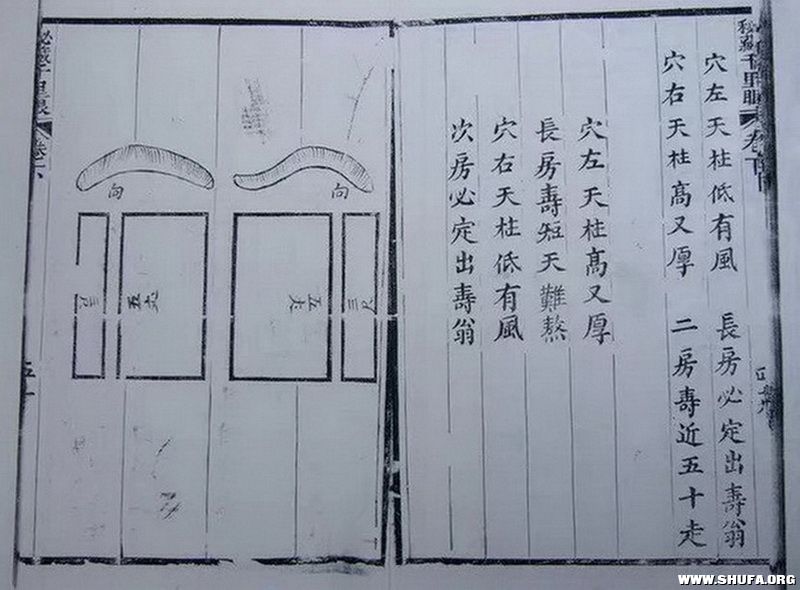 秘藏千里眼
穴左天柱低有風 長房必定出壽翁
穴右天柱髙又厚 二房壽近五十走
穴左天柱髙又厚
長房壽短天難熬
穴右天柱低有風
次房必定出壽翁
向
三尺
五丈
向
五丈
秘藏千里眼 卷下
WWW.SHUFA.ORG